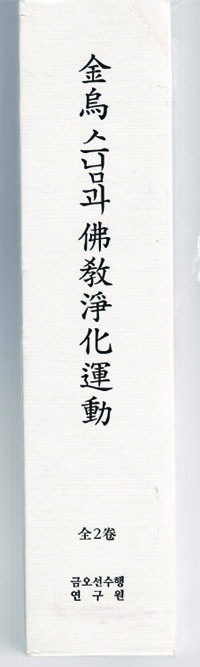 金烏 스님과 佛敎淨化運動
全2卷
금오선수행
연구원